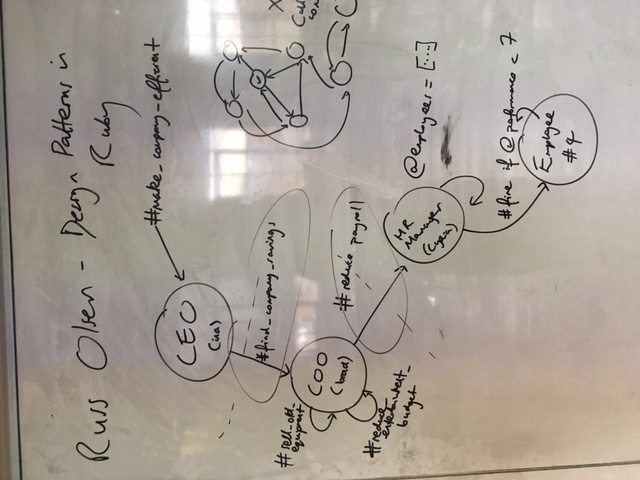 Russ Olsen - Design Patterns in
Ruby
#make_company_efficient
CEO
(ina)
#find_company_savings
#sell-old-
equipment
COO
(brad)
#reduce payroll
#reduce
entertainment_
budget
HR
Manager
@employees = [...]
#fire if @performance < 7
Employee
#4